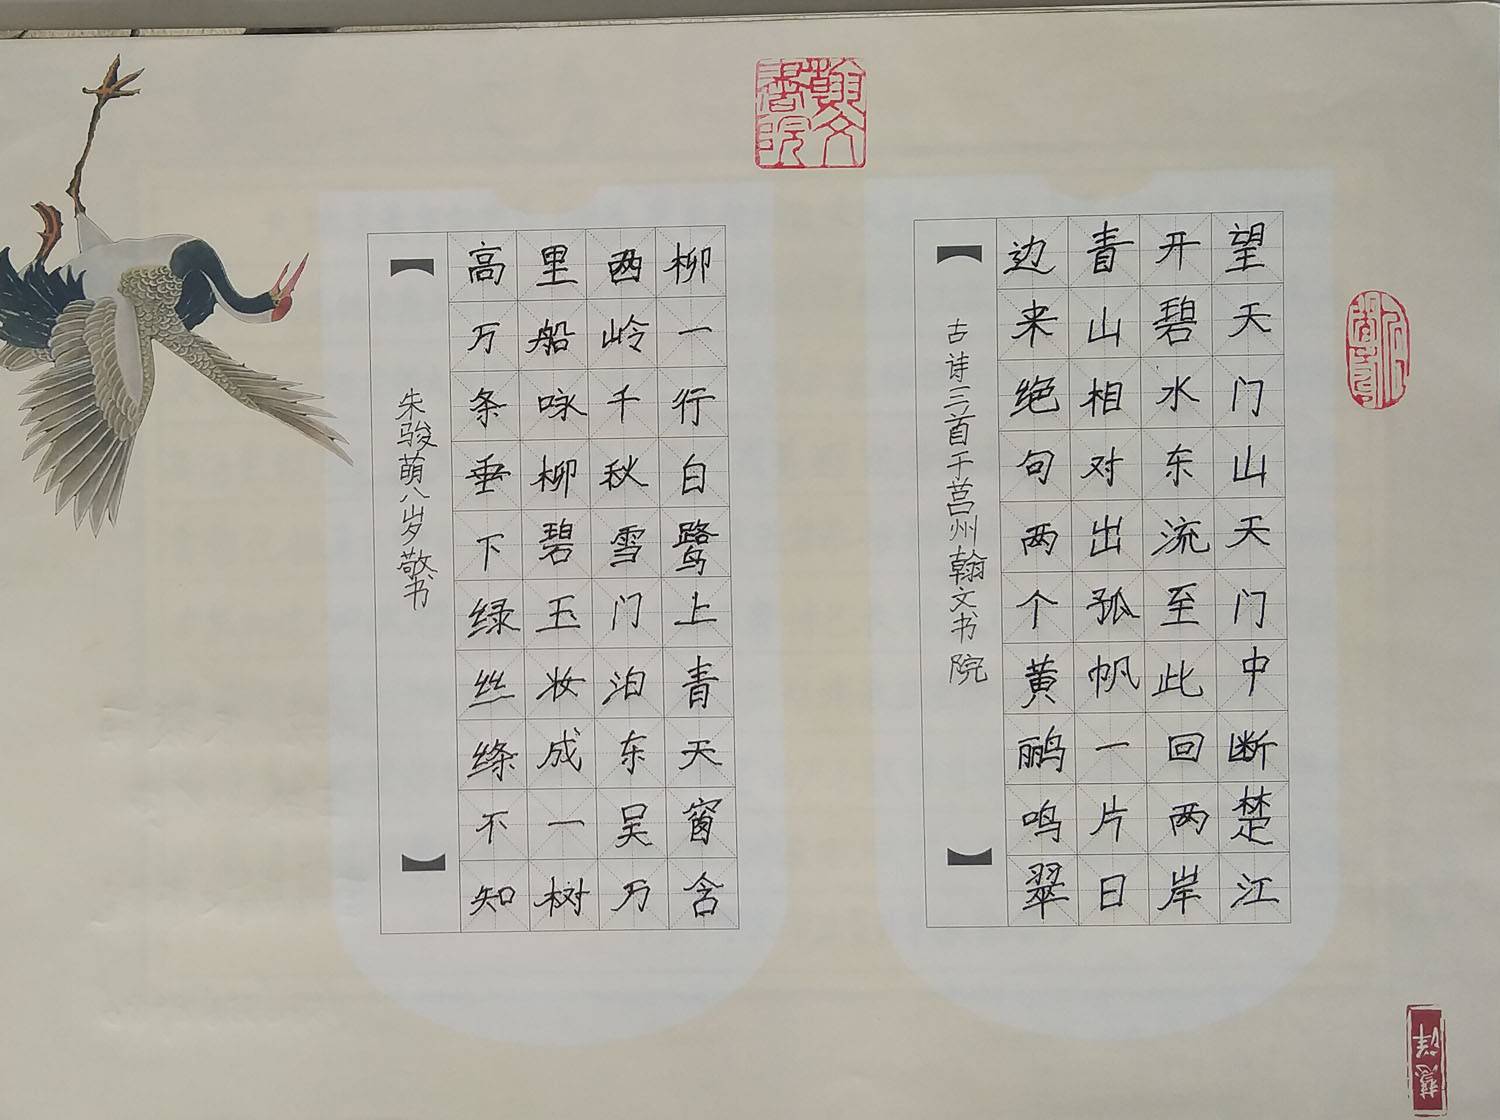 翰文書院
望天门山天门中断楚江
开碧水东流至此回两岸
青山相对出孤帆一片日
边来绝句两个黄鹂鸣翠
古诗三首于莒州翰文书院
柳一行白鹭上青天窗含
西岭千秋雪门泊东吴万
里船咏柳碧玉妆成一树
高万条垂下绿丝绦不知
朱骏萌八岁敬书